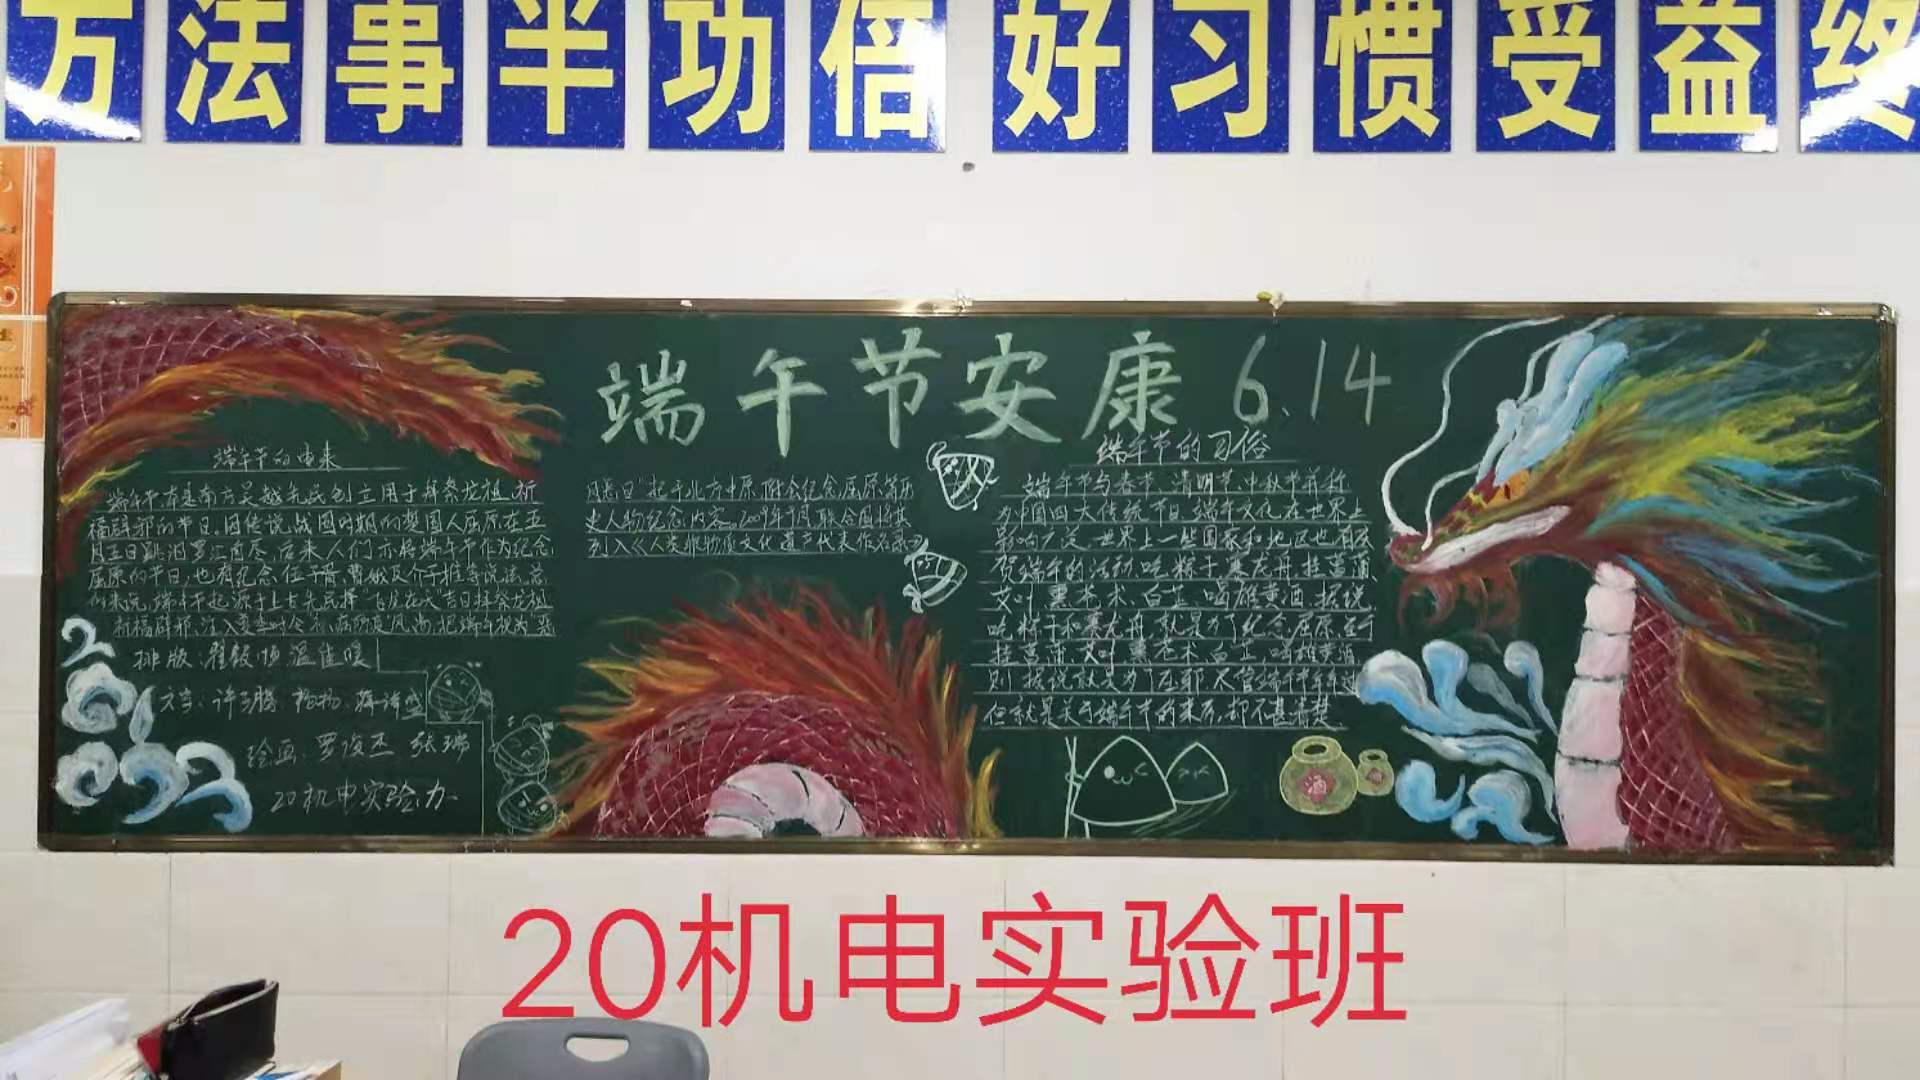 方法事半功倍 好习惯受益终
端午节安康 6.14
端午节的由来
端午节,本是南方吴越先民创立用于拜祭龙祖,祈
福辟邪的节日。因传说战国时期的楚国人屈原在五
月五日跳汨罗江自尽,后来人们亦将端午节作为纪念
屈原的节日,也有纪念伍子胥、曹娥及介子推等说法。总
的来说,端午节起源于上古先民择“飞龙在天”吉日拜祭龙祖
祈福辟邪,注入夏季时令,祛病防疫风尚,把端午视为“恶
月恶日”起于北方中原,附会纪念屈原等历
史人物纪念内容。2009年9月,联合国将其
列入《人类非物质文化遗产代表作名录》
端午节的习俗
端午节与春节、清明节、中秋节并称
为中国四大传统节日,端午文化在世界上
影响广泛,世界上一些国家和地区也有庆
贺端午的活动。吃粽子,赛龙舟,挂菖蒲、
艾叶,熏苍术、白芷,喝雄黄酒。据说
吃粽子和赛龙舟,就是为了纪念屈原,至于
挂菖蒲、艾叶,熏苍术、白芷,喝雄黄酒
则据说就是为了压邪。
但就是关于端午节的来历,却不甚清楚
排版:
文字:
绘画:罗俊杰 张瑞
20机电实验办
酒
20机电实验班